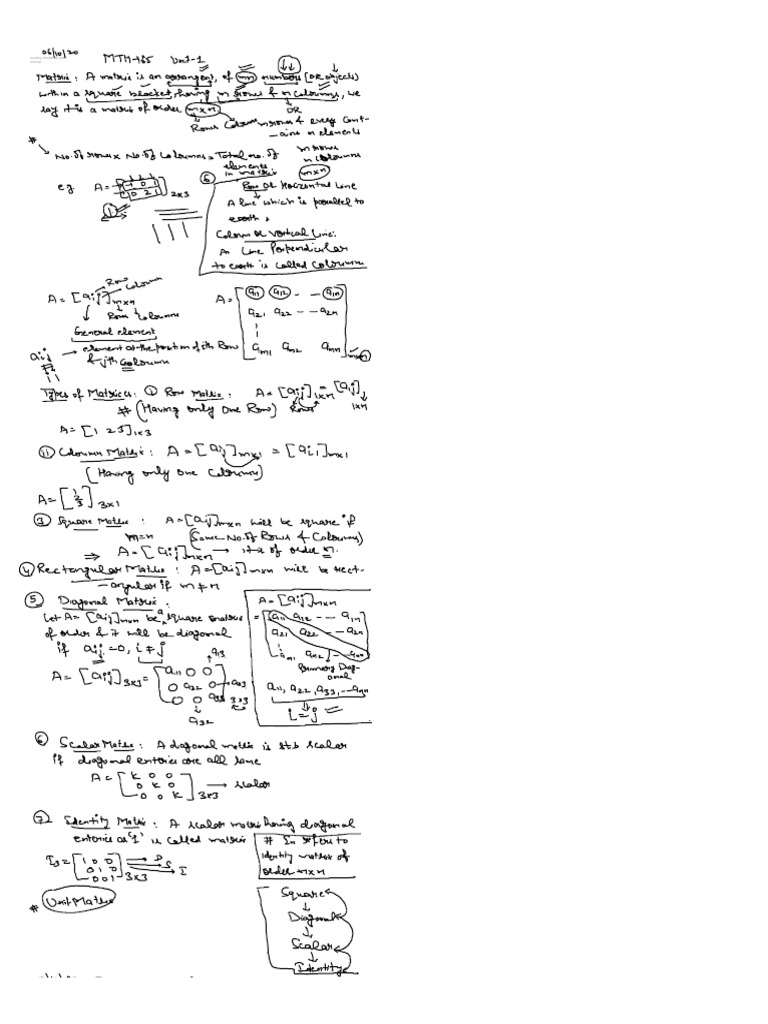 06/10/20
MTH-165 Unit-1
Matrix : A matrix is an arrangent, of mn numbers (OR objects)
within a square bracket, having m rows & n coloumns, we
say it is a matrix of order m×n OR
Rows Coloumn m rows & every Cont-
-ains n elements
* No. of rows × No. of Coloumns = Total no. of
elements
in matrix
m rows
n coloumns
m×n
eg A =
0 2 1
2×3
6
Row OR Horizontal Line
A line which is parallel to
earth.
Coloum or Vertical Line:
An Line Perpendicular
to earth is called Coloumn
A = [aij] m×n
Row
Coloumn
Rows Coloumns
General element
A = [a11 a12 - - a1n
a21 a22 - - a2n
am1 am2 amn] m×n
aij → element at the position of ith Row
& jth Coloumn
Types of Matrices: ① Row Matrix : A = [aij]1×n = [a1j]1×n
# (Having only One Row) Rows
A = [1 2 3]1×3
⑪ Coloumn Matrix : A = [aij]m×1 = [ai1]m×1
(Having only One Coloumn)
A = [1 2 3] 3×1
③ Square Matrix : A = [aij]m×n will be square if
m=n (Same No. of Rows & Coloumns)
⇒ A = [aij]n×n → it is of order n.
④ Rectangular Matrix : A = [aij]m×n will be rect-
-angular if m ≠ n
⑤ Diagonal Matrix :
Let A = [aij]n×n be a square matrix
of order & it will be diagonal
if aij = 0, i ≠ j
a13
A = [aij]3×3 = [a11 0 0
0 a22 0 → a23
0 0 a33] 3×3
a32
A = [aij]n×n
= [a11 a12 - - - a1n
a21 a22 - - a2n
an1 an2 - - ann]
Primary Diag-
onal
a11, a22, a33, - - ann
i = j
⑥ Scalar Matrix : A diagonal matrix is s.t.b scalar
if diagonal entries are all same
A = [K 0 0
0 K 0
0 0 K] 3×3 → scalar
⑦ Identity Matrix : A scalar matrix having diagonal
entries as '1' is called matrix
# In refers to
identity matrix of
order n×n
I3 = [1 0 0
0 1 0
0 0 1] 3×3
D
S
I
* Unit Matrix
Square
↓
Diagonal
↓
Scalar
↓
Identity